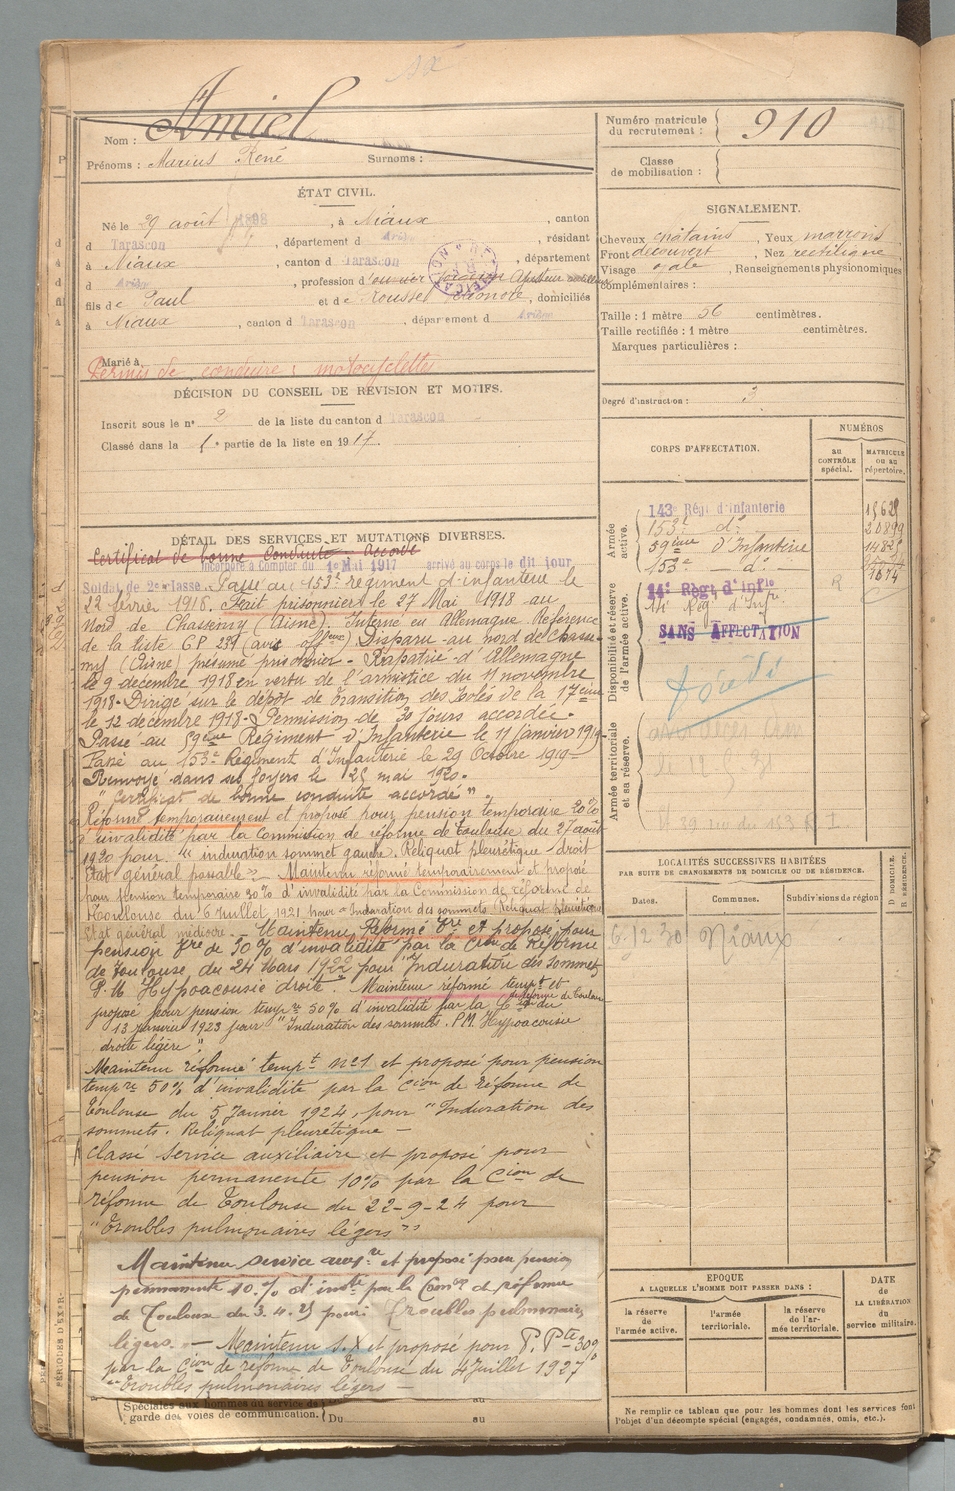 Nom : Amiel
Prénoms : Marius René Surnoms :
Numéro matricule du recrutement : 910
Classe de mobilisation :
ÉTAT CIVIL.
Né le 29 août 1898, à Niaux, canton
d Tarascon, département d Ariège, résidant
à Niaux, canton d Tarascon, département
d Ariège, profession d'ouvrier Ajusteur
fils de Paul et de Rousse, domiciliés
à Niaux, canton d Tarascon, département d Ariège
Marié à
Permis de conduire : motocyclette
SIGNALEMENT.
Cheveux châtains, Yeux marrons
Front découvert, Nez rectiligne
Visage ovale, Renseignements physionomiques
complémentaires :
Taille : 1 mètre 56 centimètres.
Taille rectifiée : 1 mètre centimètres.
Marques particulières :
Degré d'instruction : 3
DÉCISION DU CONSEIL DE RÉVISION ET MOTIFS.
Inscrit sous le n° 2 de la liste du canton d Tarascon
Classé dans la 1e partie de la liste en 1917.
DÉTAIL DES SERVICES ET MUTATIONS DIVERSES.
Certificat de bonne Conduite Accordé
Incorporé à Compter du 1er Mai 1917 arrivé au corps le dit jour
Soldat de 2e classe. Passé au 153e régiment d'infanterie le
22 février 1918. Fait prisonnier le 27 Mai 1918 au
Nord de Chassemy (Aisne). Interné en Allemagne. Référence
de la liste G.P. 239 (avis offeux) Disparu au nord de Chasse-
my (Aisne) présumé prisonnier - Rapatrié d'Allemagne
le 9 décembre 1918 en vertu de l'armistice du 11 novembre
1918 - Dirigé sur le dépôt de transition des Isolés de la 17ème
le 12 décembre 1918. Permission de 30 jours accordée.
Passé au 59ème Régiment d'Infanterie le 11 janvier 1919-
Passé au 153e Régiment d'Infanterie le 29 Octobre 1919-
Renvoyé dans ses foyers le 25 mai 1920.
"Certificat de bonne conduite accordé".
Réformé temporairement et proposé pour pension temporaire 20%
d'invalidité par la Commission de réforme de Toulouse du 27 août
1920 pour "induration sommet gauche. Reliquat pleurétique droit
Etat général passable" - Maintenu réformé temporairement et proposé
pour pension temporaire 30% d'invalidité par la Commission de réforme de
Toulouse du 6 Juillet 1921 pour "Induration des sommets Reliquat pleurétique
Etat général médiocre. - Maintenu Réformé Tre et proposé pour
pension Tre de 50% d'invalidité par la Cion de Réforme
de Toulouse, du 24 Mars 1922 pour "Induration des sommets
P.M. Hypoacousie droite. Maintenu réformé tempt et
proposé pour pension tempre 50% d'invalidité par la Cion de réforme de Toulouse du
13 janvier 1923 pour "Induration des sommets. P.M. Hypoacousie
droite légère".
Maintenu réformé tempt n°1 et proposé pour pension
tempre 50% d'invalidité par la Cion de réforme de
Toulouse du 5 Janvier 1924, pour "Induration des
sommets. Reliquat pleurétique -
Classé Service auxiliaire et proposé pour
pension permanente 10% par la Cion de
réforme de Toulouse du 22-9-24 pour
"Troubles pulmonaires légers"
Maintenu service auxre et proposé pour pension
permanente 10% d'invté par la Comon de réforme
de Toulouse du 3.4.25 pour: Troubles pulmonaires
légers. - Maintenu S.X et proposé pour P. Pte 30%
par la Cion de réforme de Toulouse du 4 Juillet 1927
"Troubles pulmonaires légers -
Spéciales aux hommes du service de
garde des voies de communication. Du au
au
PÉRIODES D'EXER.
CORPS D'AFFECTATION.
NUMÉROS
au CONTRÔLE spécial.
MATRICULE ou au répertoire.
Armée active.
143e Régt d'infanterie
153e do 20899
59ème d'Infanterie
153e do 1674
Disponibilité et réserve de l'armée active.
14e Régt d'Infie
SANS AFFECTATION
Armée territoriale et sa réserve.
LOCALITÉS SUCCESSIVES HABITÉES
PAR SUITE DE CHANGEMENTS DE DOMICILE OU DE RÉSIDENCE.
Dates. Communes. Subdivisions de région D. DOMICILE. R. RÉSIDENCE.
6.12.30 Niaux
EPOQUE
A LAQUELLE L'HOMME DOIT PASSER DANS :
la réserve de l'armée active.
l'armée territoriale.
la réserve de l'armée territoriale.
DATE DE LA LIBÉRATION du service militaire.
Ne remplir ce tableau que pour les hommes dont les services font
l'objet d'un décompte spécial (engagés, condamnés, omis, etc.).